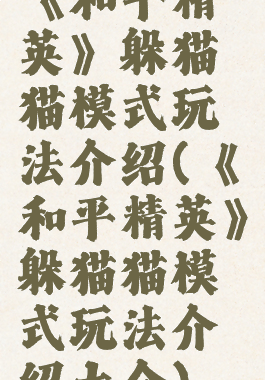 《和平精
英》躲猫
猫模式玩
法介绍(《
和平精英》
躲猫猫模
式玩法介
绍大全)